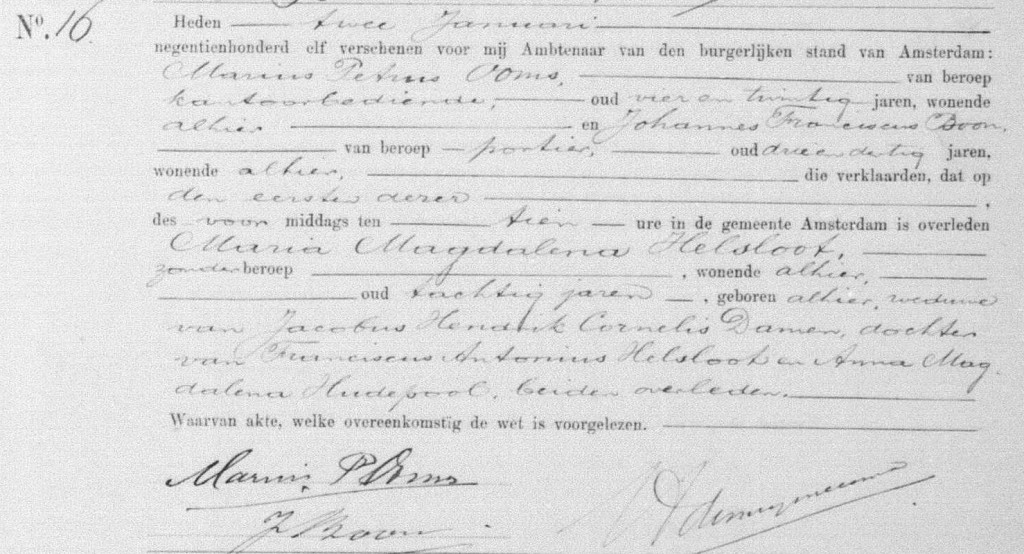 No. 16.
Heden twee Januari
negentienhonderd elf verschenen voor mij Ambtenaar van den burgerlijken stand van Amsterdam:
Marius Petrus Ooms, van beroep
kantoorbediende, oud vier en twintig jaren, wonende
alhier en Johannes Franciscus Boon,
van beroep portier, oud drie en dertig jaren,
wonende alhier, die verklaarden, dat op
den eersten dezer,
des voormiddags ten tien ure in de gemeente Amsterdam is overleden
Maria Magdalena Helsloot,
zonder beroep, wonende alhier,
oud tachtig jaren, geboren alhier, weduwe
van Jacobus Hendrik Cornelis Damen, dochter
van Franciscus Antonius Helsloot en Anna Mag-
dalena Hudepool, beiden overleden.
Waarvan akte, welke overeenkomstig de wet is voorgelezen.
Marius P Ooms
J Boon